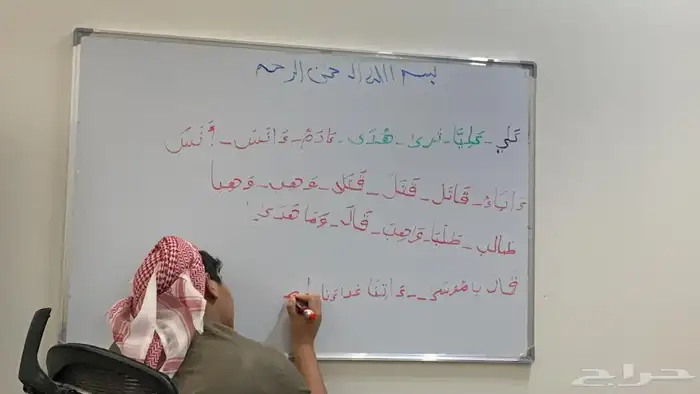 بسم الله الرحمن الرحيم
علي - عليا - نرى - هدى - ءادم - ءانس - أنس
ءاباء - قاتل - قتل - قتلا - وهب - وهبا
طالب - طلبا - واهب - قال - وما هدى
قال ياموسى - ءاتنا غداءنا
حراج